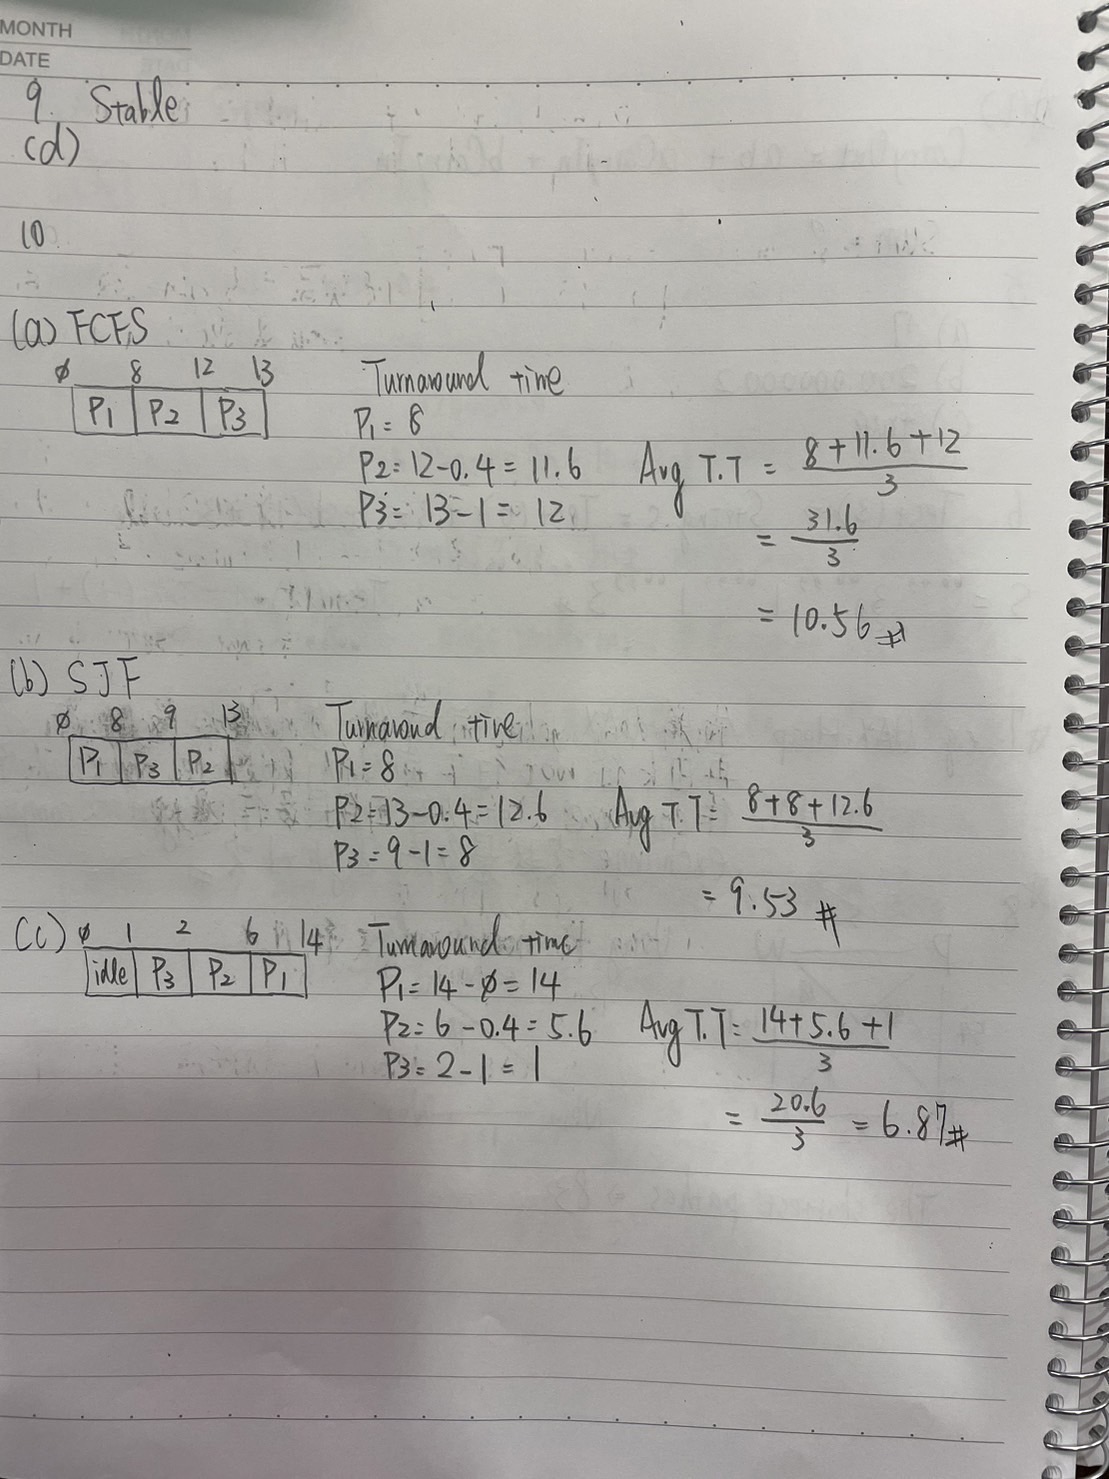 MONTH
DATE
9. Stable
(d)
10
(a) FCFS
0 8 12 13
P1 P2 P3
Turnaround time
P1 = 8
P2 = 12-0.4 = 11.6
P3 = 13-1 = 12
Avg T.T = 8+11.6+12 / 3
= 31.6 / 3
= 10.56 #
(b) SJF
0 8 9 13
P1 P3 P2
Turnaround time
P1 = 8
P2 = 13-0.4 = 12.6
P3 = 9-1 = 8
Avg T.T = 8+8+12.6 / 3
= 9.53 #
(c) 0 1 2 6 14
idle P3 P2 P1
Turnaround time
P1 = 14-0 = 14
P2 = 6-0.4 = 5.6
P3 = 2-1 = 1
Avg T.T = 14+5.6+1 / 3
= 20.6 / 3 = 6.87 #